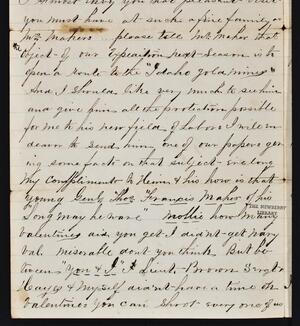 I Almost envy you that pleasant visit
you must have at such a fine family as
Mr Mahers please tell Mr Maher that
object of our Expedition next Season is to
open a route to the "Idaho gold mines"
And I should like very much to see him
and give him all the protection possible
for me to his new field of labors I will en
deavor to send him one of our papers giv
ing some facts on that subject ere long
My Compliments to Him & his how is that
young Gent Thos Francis Maher of his
"Long may he wave" Mollie how many
Valentines did you get I didn't get nary
val. Miserable dont you think But be
tween "You & I" Lieut. Brown Sergt
Hayes & Myself didn't have a time oh
Valentines you can Shoot every one of us
THE NEWBERRY
LIBRARY